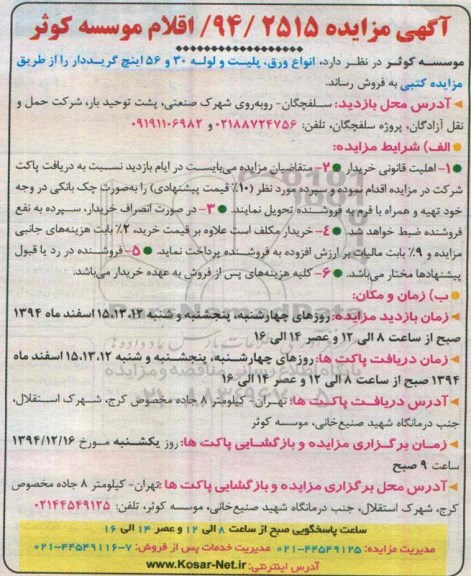 آگهی مزایده ۲۵۱۵ /۹۴/ اقلام موسسه کوثر
موسسه کوثر در نظر دارد، انواع ورق، پلیت و لوله ۳۰ و ۵۶ اینچ گریددار را از طریق
مزایده کتبی به فروش رساند.
آدرس محل بازدید: سلفچگان- روبه‌روی شهرک صنعتی، پشت توحید بار، شرکت حمل و
نقل آزادگان، پروژه سلفچگان، تلفن: ۰۲۱۸۸۷۲۴۷۵۶ و ۰۹۱۹۱۱۰۶۹۸۲
الف) شرایط مزایده:
۱- اهلیت قانونی خریدار ۲- متقاضیان مزایده می‌بایست در ایام بازدید نسبت به دریافت پاکت
شرکت در مزایده اقدام نموده و سپرده مورد نظر (۱۰٪ قیمت پیشنهادی) را به‌صورت چک بانکی در وجه
خود تهیه و همراه با فرم به فروشنده تحویل نمایند. ۳- در صورت انصراف خریدار، سپرده به نفع
فروشنده ضبط خواهد شد. ۴- خریدار مکلف است علاوه بر قیمت خرید، ۲٪ بابت هزینه‌های جانبی
مزایده و ۹٪ بابت مالیات بر ارزش افزوده به فروشنده پرداخت نماید. ۵- فروشنده در رد یا قبول
پیشنهادها مختار می‌باشد. ۶- کلیه هزینه‌های پس از فروش به عهده خریدار می‌باشد.
ب) زمان و مکان:
زمان بازدید مزایده: روزهای چهارشنبه، پنجشنبه و شنبه ۱۵،۱۳،۱۲ اسفند ماه ۱۳۹۴
صبح از ساعت ۸ الی ۱۲ و عصر ۱۴ الی ۱۶
زمان دریافت پاکت ها: روزهای چهارشنبه، پنجشنبه و شنبه ۱۵،۱۳،۱۲ اسفند ماه
۱۳۹۴ صبح از ساعت ۸ الی ۱۲ و عصر ۱۴ الی ۱۶
آدرس دریافت پاکت ها: تهران- کیلومتر ۸ جاده مخصوص کرج، شهرک استقلال،
جنب درمانگاه شهید صنیع‌خانی، موسسه کوثر
زمان برگزاری مزایده و بازگشایی پاکت ها: روز یکشنبه مورخ ۱۳۹۴/۱۲/۱۶
ساعت ۹ صبح
آدرس محل برگزاری مزایده و بازگشایی پاکت ها: تهران- کیلومتر ۸ جاده مخصوص
کرج، شهرک استقلال، جنب درمانگاه شهید صنیع‌خانی، موسسه کوثر، تلفن: ۰۲۱۴۴۵۴۹۱۲۵
ساعت پاسخگویی صبح از ساعت ۸ الی ۱۲ و عصر ۱۴ الی ۱۶
مدیریت مزایده: ۴۴۵۴۹۱۲۵-۰۲۱ مدیریت خدمات پس از فروش: ۷-۴۴۵۴۹۱۱۶-۰۲۱
آدرس اینترنتی: www.Kosar-Net.ir